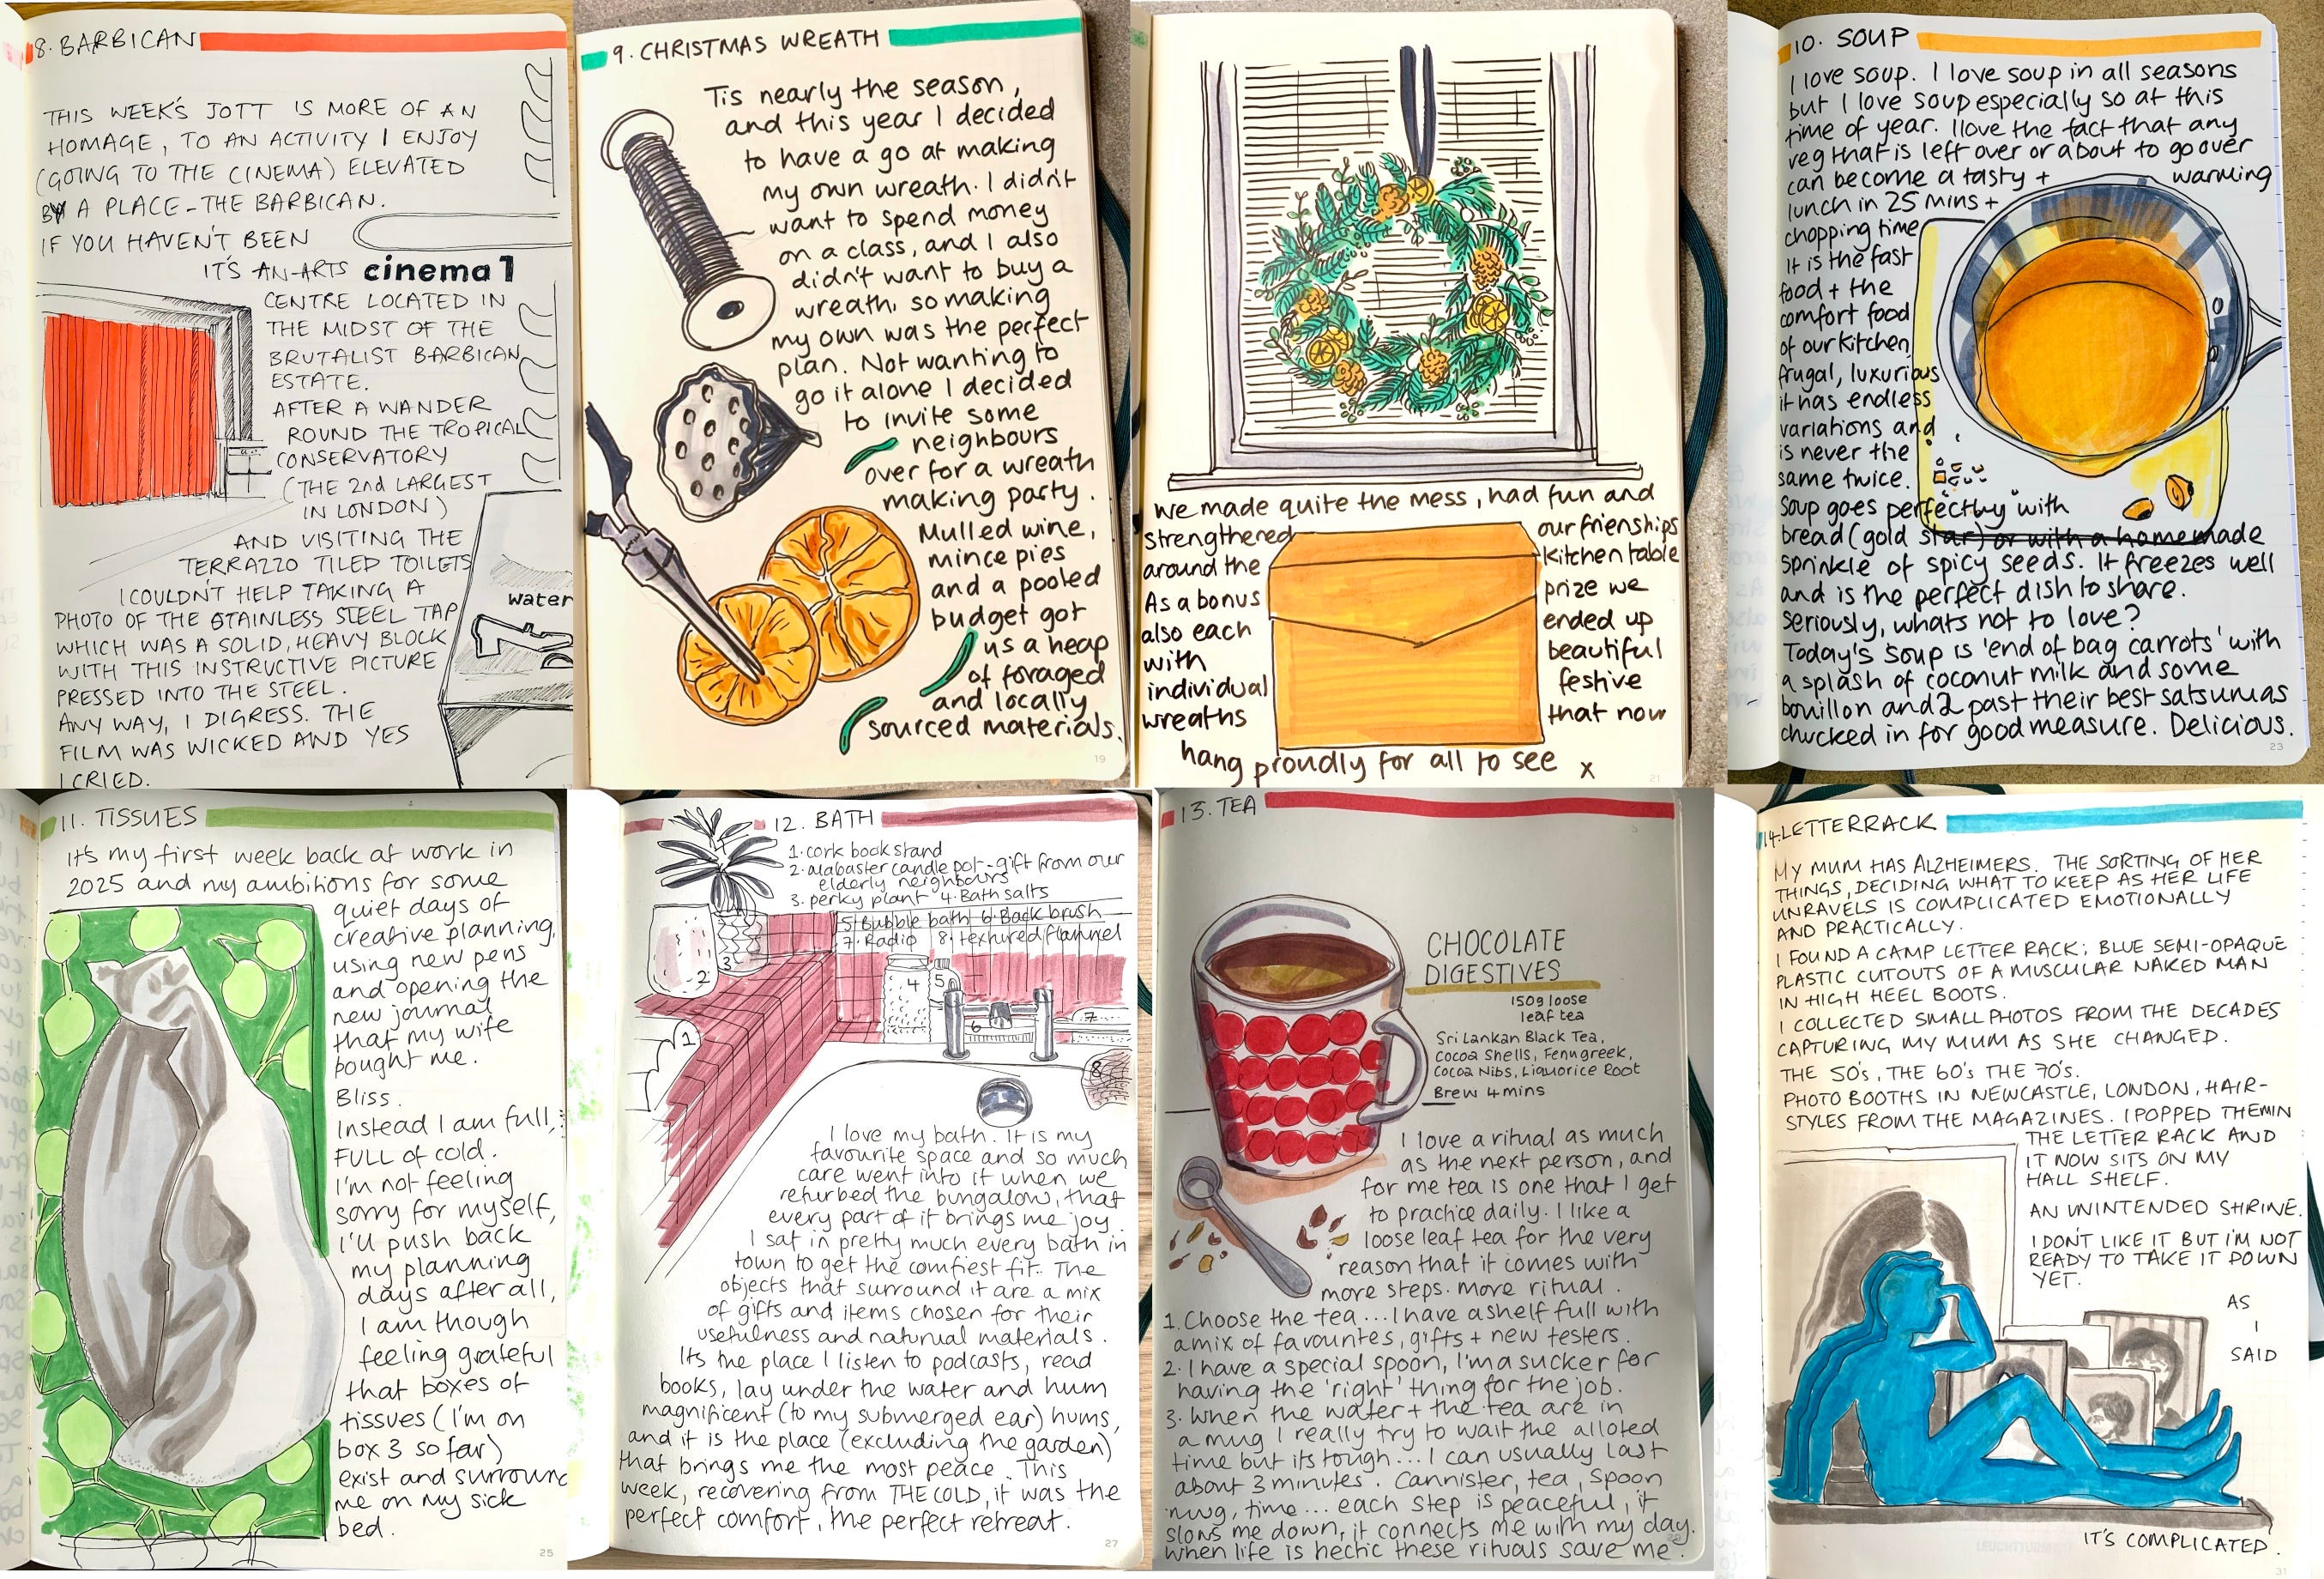 8. BARBICAN
THIS WEEK'S JOTT IS MORE OF AN
HOMAGE, TO AN ACTIVITY I ENJOY
(GOING TO THE CINEMA) ELEVATED
BY A PLACE - THE BARBICAN.
IF YOU HAVEN'T BEEN
IT'S AN ARTS
cinema 1
CENTRE LOCATED IN
THE MIDST OF THE
BRUTALIST BARBICAN
ESTATE.
AFTER A WANDER
ROUND THE TROPICAL
CONSERVATORY
(THE 2nd LARGEST
IN LONDON)
AND VISITING THE
TERRAZZO TILED TOILETS
I COULDN'T HELP TAKING A
PHOTO OF THE STAINLESS STEEL TAP
WHICH WAS A SOLID, HEAVY BLOCK
WITH THIS INSTRUCTIVE PICTURE
PRESSED INTO THE STEEL.
ANY WAY, I DIGRESS. THE
FILM WAS WICKED AND YES
I CRIED.
water
9. CHRISTMAS WREATH
Tis nearly the season,
and this year I decided
to have a go at making
my own wreath. I didn't
want to spend money
on a class, and I also
didn't want to buy a
wreath, so making
my own was the perfect
plan. Not wanting to
go it alone I decided
to invite some
neighbours
over for a wreath
making party.
Mulled wine,
mince pies
and a pooled
budget got
us a heap
of foraged
and locally
sourced materials.
19
we made quite the mess, had fun and
strengthened our frienships
around the kitchen table
As a bonus prize we
also each ended up
with beautiful
individual festive
wreaths that now
hang proudly for all to see x
21
10. SOUP
I love soup. I love soup in all seasons
but I love soup especially so at this
time of year. I love the fact that any
veg that is left over or about to go over
can become a tasty + warming
lunch in 25 mins +
chopping time
It is the fast
food + the
comfort food
of our kitchen
frugal, luxurious
it has endless
variations and
is never the
same twice.
Soup goes perfectly with
bread (gold star) or with a homemade
sprinkle of spicy seeds. It freezes well
and is the perfect dish to share.
Seriously, whats not to love?
Today's soup is 'end of bag carrots' with
a splash of coconut milk and some
bouillon and 2 past their best satsumas
chucked in for good measure. Delicious.
23
11. TISSUES
It's my first week back at work in
2025 and my ambitions for some
quiet days of
creative planning,
using new pens
and opening the
new journal
that my wife
bought me.
Bliss.
Instead I am full,
FULL of cold.
I'm not feeling
sorry for myself,
I'll push back
my planning
days after all,
I am though
feeling grateful
that boxes of
tissues (I'm on
box 3 so far)
exist and surround
me on my sick
bed.
25
12. BATH
1. cork book stand
2. alabaster candle pot - gift from our
elderly neighbours
3. perky plant 4. Bath salts
5. Bubble bath 6. Back brush
7. Radio 8. textured flannel
1
2
3
4
5
6
7
8
I love my bath. It is my
favourite space and so much
care went into it when we
refurbed the bungalow, that
every part of it brings me joy.
I sat in pretty much every bath in
town to get the comfiest fit. The
objects that surround it are a mix
of gifts and items chosen for their
usefulness and natural materials.
Its the place I listen to podcasts, read
books, lay under the water and hum
magnificent (to my submerged ear) hums,
and it is the place (excluding the garden)
that brings me the most peace. This
week, recovering from THE COLD, it was the
perfect comfort, the perfect retreat.
27
13. TEA
CHOCOLATE
DIGESTIVES
150g loose
leaf tea
Sri Lankan Black Tea,
Cocoa Shells, Fenugreek,
Cocoa Nibs, Liquorice Root
Brew 4 mins
I love a ritual as much
as the next person, and
for me tea is one that I get
to practice daily. I like a
loose leaf tea for the very
reason that it comes with
more steps. more ritual.
1. Choose the tea... I have a shelf full with
a mix of favourites, gifts + new testers.
2. I have a special spoon, I'm a sucker for
having the 'right' thing for the job.
3. When the water + the tea are in
a mug I really try to wait the alloted
time but its tough... I can usually last
about 3 minutes. Cannister, tea, spoon
mug, time... each step is peaceful, it
slows me down, it connects me with my day.
When life is hectic these rituals save me.
14. LETTER RACK
MY MUM HAS ALZHEIMERS. THE SORTING OF HER
THINGS, DECIDING WHAT TO KEEP AS HER LIFE
UNRAVELS IS COMPLICATED EMOTIONALLY
AND PRACTICALLY.
I FOUND A CAMP LETTER RACK; BLUE SEMI-OPAQUE
PLASTIC CUTOUTS OF A MUSCULAR NAKED MAN
IN HIGH HEEL BOOTS.
I COLLECTED SMALL PHOTOS FROM THE DECADES
CAPTURING MY MUM AS SHE CHANGED.
THE 50's, THE 60's THE 70's.
PHOTO BOOTHS IN NEWCASTLE, LONDON, HAIR-
STYLES FROM THE MAGAZINES. I POPPED THEM IN
THE LETTER RACK AND
IT NOW SITS ON MY
HALL SHELF.
AN UNINTENDED SHRINE.
I DON'T LIKE IT BUT I'M NOT
READY TO TAKE IT DOWN
YET.
AS
I
SAID
IT'S COMPLICATED.
31